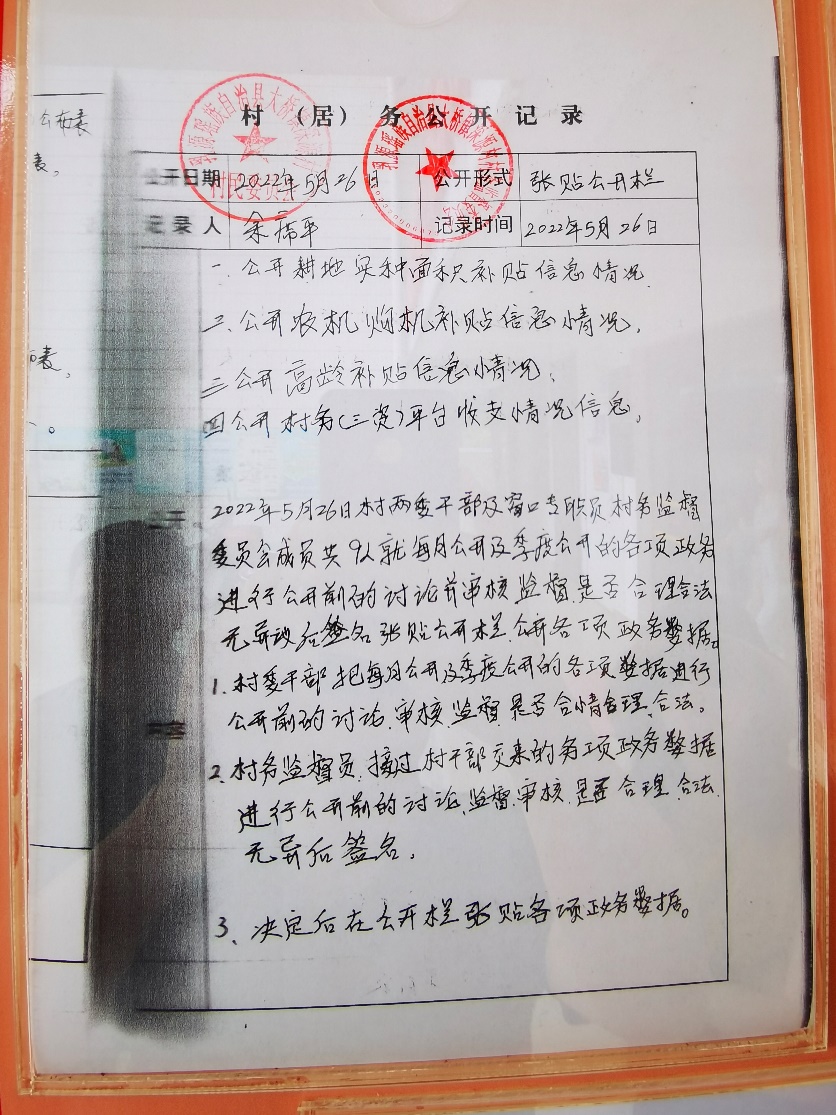 公布表
表。
表。
。
村（居）务公开记录
乳源瑶族自治县大桥镇
村民委员会
乳源瑶族自治县大桥镇
公开日期 2022年5月26日 公开形式 张贴公开栏
记录人 余 平 记录时间 2022年5月26日
一.公开耕地实种面积补贴信息情况
二.公开农机购机补贴信息情况。
三公开高龄补贴信息情况。
四公开村务(三资)平台收支情况信息。
公开
2022年5月26日村两委干部及窗口专职员村务监督
委员会成员共9人就每月公开及季度公开的各项政务
进行公开前的讨论并审核监督是否合理合法
无异议后签名张贴公开栏.公开各项政务数据。
1.村委干部把每月公开及季度公开的各项数据进行
公开前的讨论.审核.监督.是否合情合理.合法。
内容
2.村务监督员.接过村干部交来的各项政务数据
进行公开前的讨论.监督.审核.是否合理.合法.
无异后签名。
3、决定后在公开栏张贴各项政务数据。